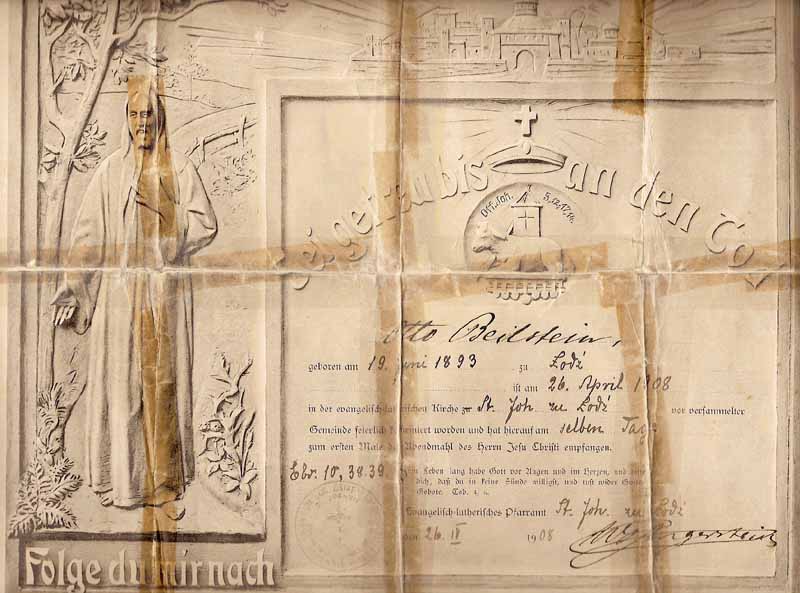 Sei getreu bis an den Tod
Off. Joh. 5, 12, 17, 14.
Otto Beilstein,
geboren am 19. Juni 1893 zu Lodź
ist am 26. April 1908
in der evangelisch-lutherischen Kirche zu St. Joh. zu Lodź vor versammelter
Gemeinde feierlich konfirmiert worden und hat hierauf am selben Tage
zum ersten Male das Abendmahl des Herrn Jesu Christi empfangen.
Ebr. 10, 38.39.
Dein Leben lang habe Gott vor Augen und im Herzen, und hüte
dich, daß du in keine Sünde willigst, und tust wider Gottes
Gebote. Tob. 4, 6.
Evangelisch-lutherisches Pfarramt St. Joh. zu Lodź
den 26. IV 1908
Folge du mir nach